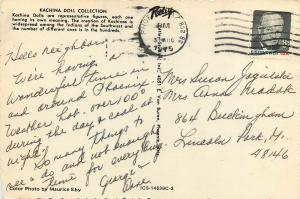 KACHINA DOLL COLLECTION
Kachina Dolls are representative figures, each one
having its own meaning. The creation of Kachinas is
widespread among the Indians of the Southwest and
the number of different ones is in the hundreds.
Hello neighbors
We're having
wonderful time in
and around Phoenix
Weather hot, over 100°
during the day & cool at
night.
So many things to
see & do and not enough
time for everything.
George &
Jane
Color Photo by Maurice Eby
ICS-14638C-3
1975
Mrs Susan
Mrs Anna
864 Buckingham
Lincoln Park, Mi.
48146